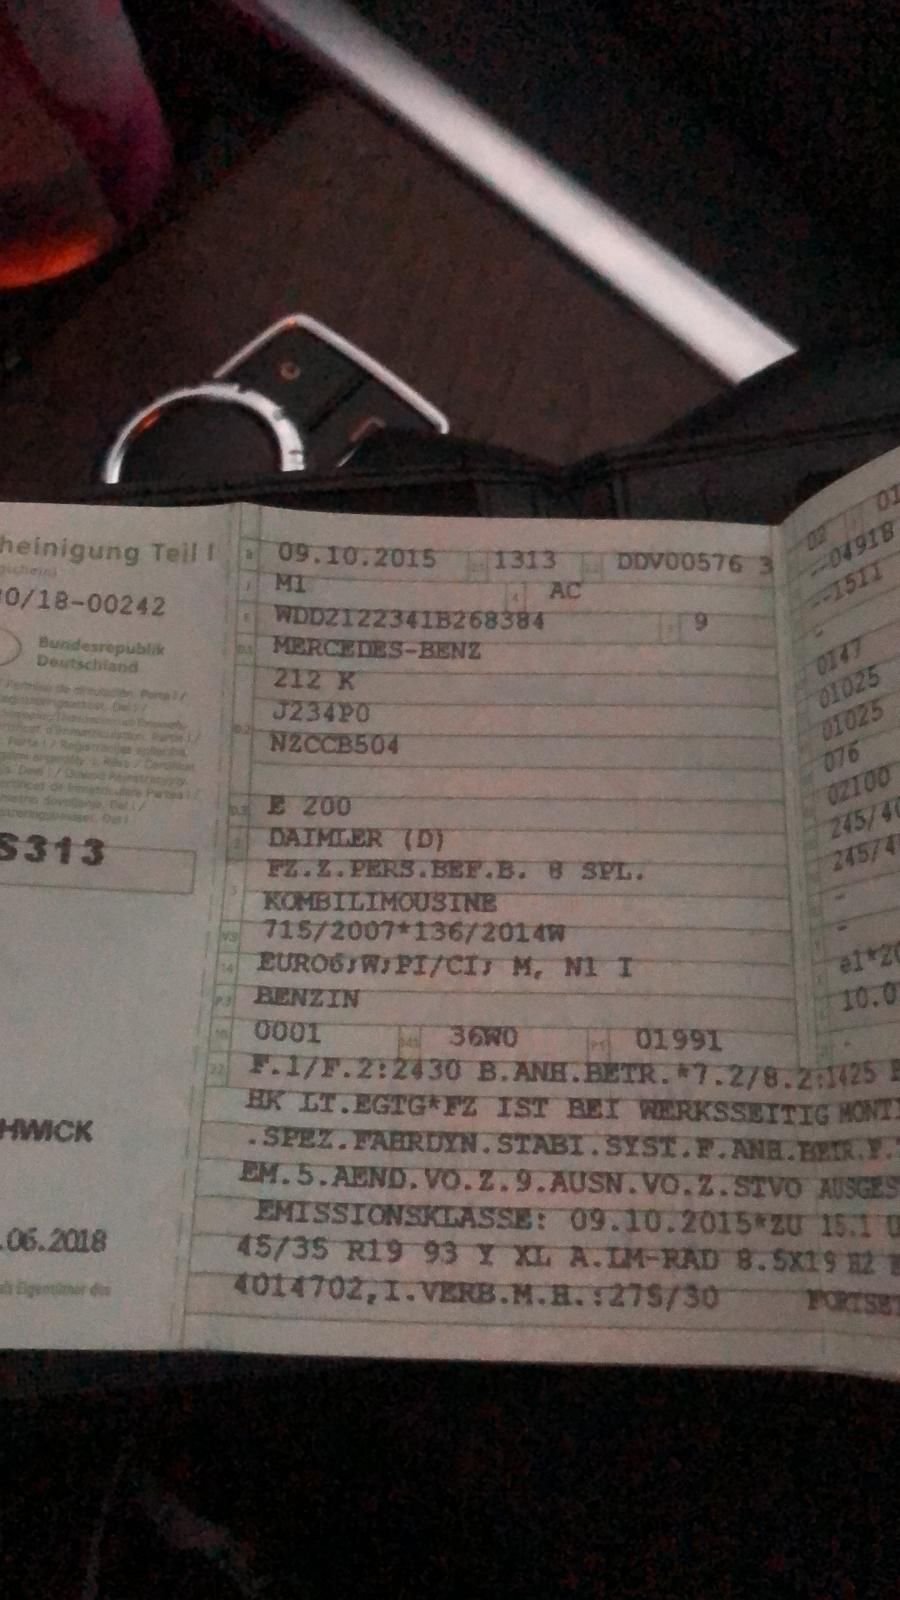 heinigung Teil I
0/18-00242
Bundesrepublik
Deutschland
S313
HWICK
.06.2018
09.10.2015 1313 DDV00576 3
M1 AC
WDD2122341B268384 9
MERCEDES-BENZ
212 K
J234P0
NZCCB504
E 200
DAIMLER (D)
FZ.Z.PERS.BEF.B. 8 SPL.
KOMBILIMOUSINE
715/2007*136/2014W
EURO6;W;PI/CI; M, N1 I
BENZIN
0001 36W0 01991
F.1/F.2:2430 B.ANH.BETR.*7.2/8.2:1425
HK LT.EGTG*FZ IST BEI WERKSSEITIG MONTI
.SPEZ.FAHRDYN.STABI.SYST.F.ANH.BETR.F.
EM.5.AEND.VO.Z.9.AUSN.VO.Z.STVO AUSGES
EMISSIONSKLASSE: 09.10.2015*ZU 15.1 U
45/35 R19 93 Y XL A.LM-RAD 8.5X19 H2
4014702,I.VERB.M.H.:275/30 FORTSET
02 01
--04918
--1511
-
0147
01025
01025
076
02100
245/40
245/4
-
-
e1*20
10.0
-